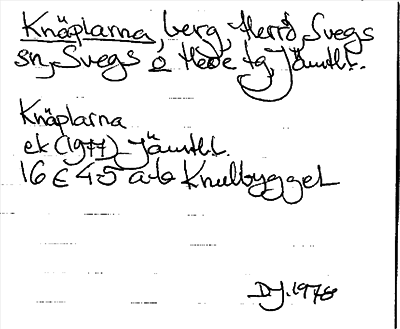 Knäplarna, berg, Herrö, Svegs
sn, Svegs o Hede tg, Jämtl.
Knäplarna
ek (1977) Jämtl.
16 E 4-5 a-b Knulbygget
D.J. 1978